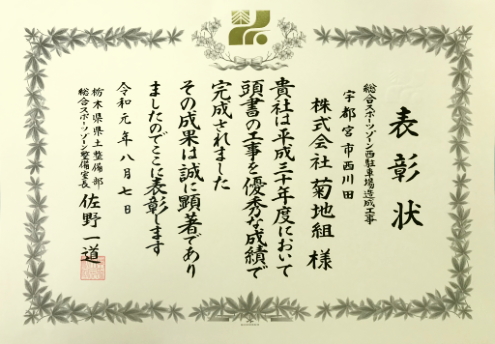 表彰状
総合スポーツゾーン西駐車場造成工事
宇都宮市西川田
株式会社 菊地組 様
貴社は平成三十年度において
頭書の工事を優秀な成績で
完成されました
その成果は誠に顕著であり
ましたのでここに表彰します
令和元年八月七日
栃木県県土整備部
総合スポーツゾーン整備室長 佐野一道